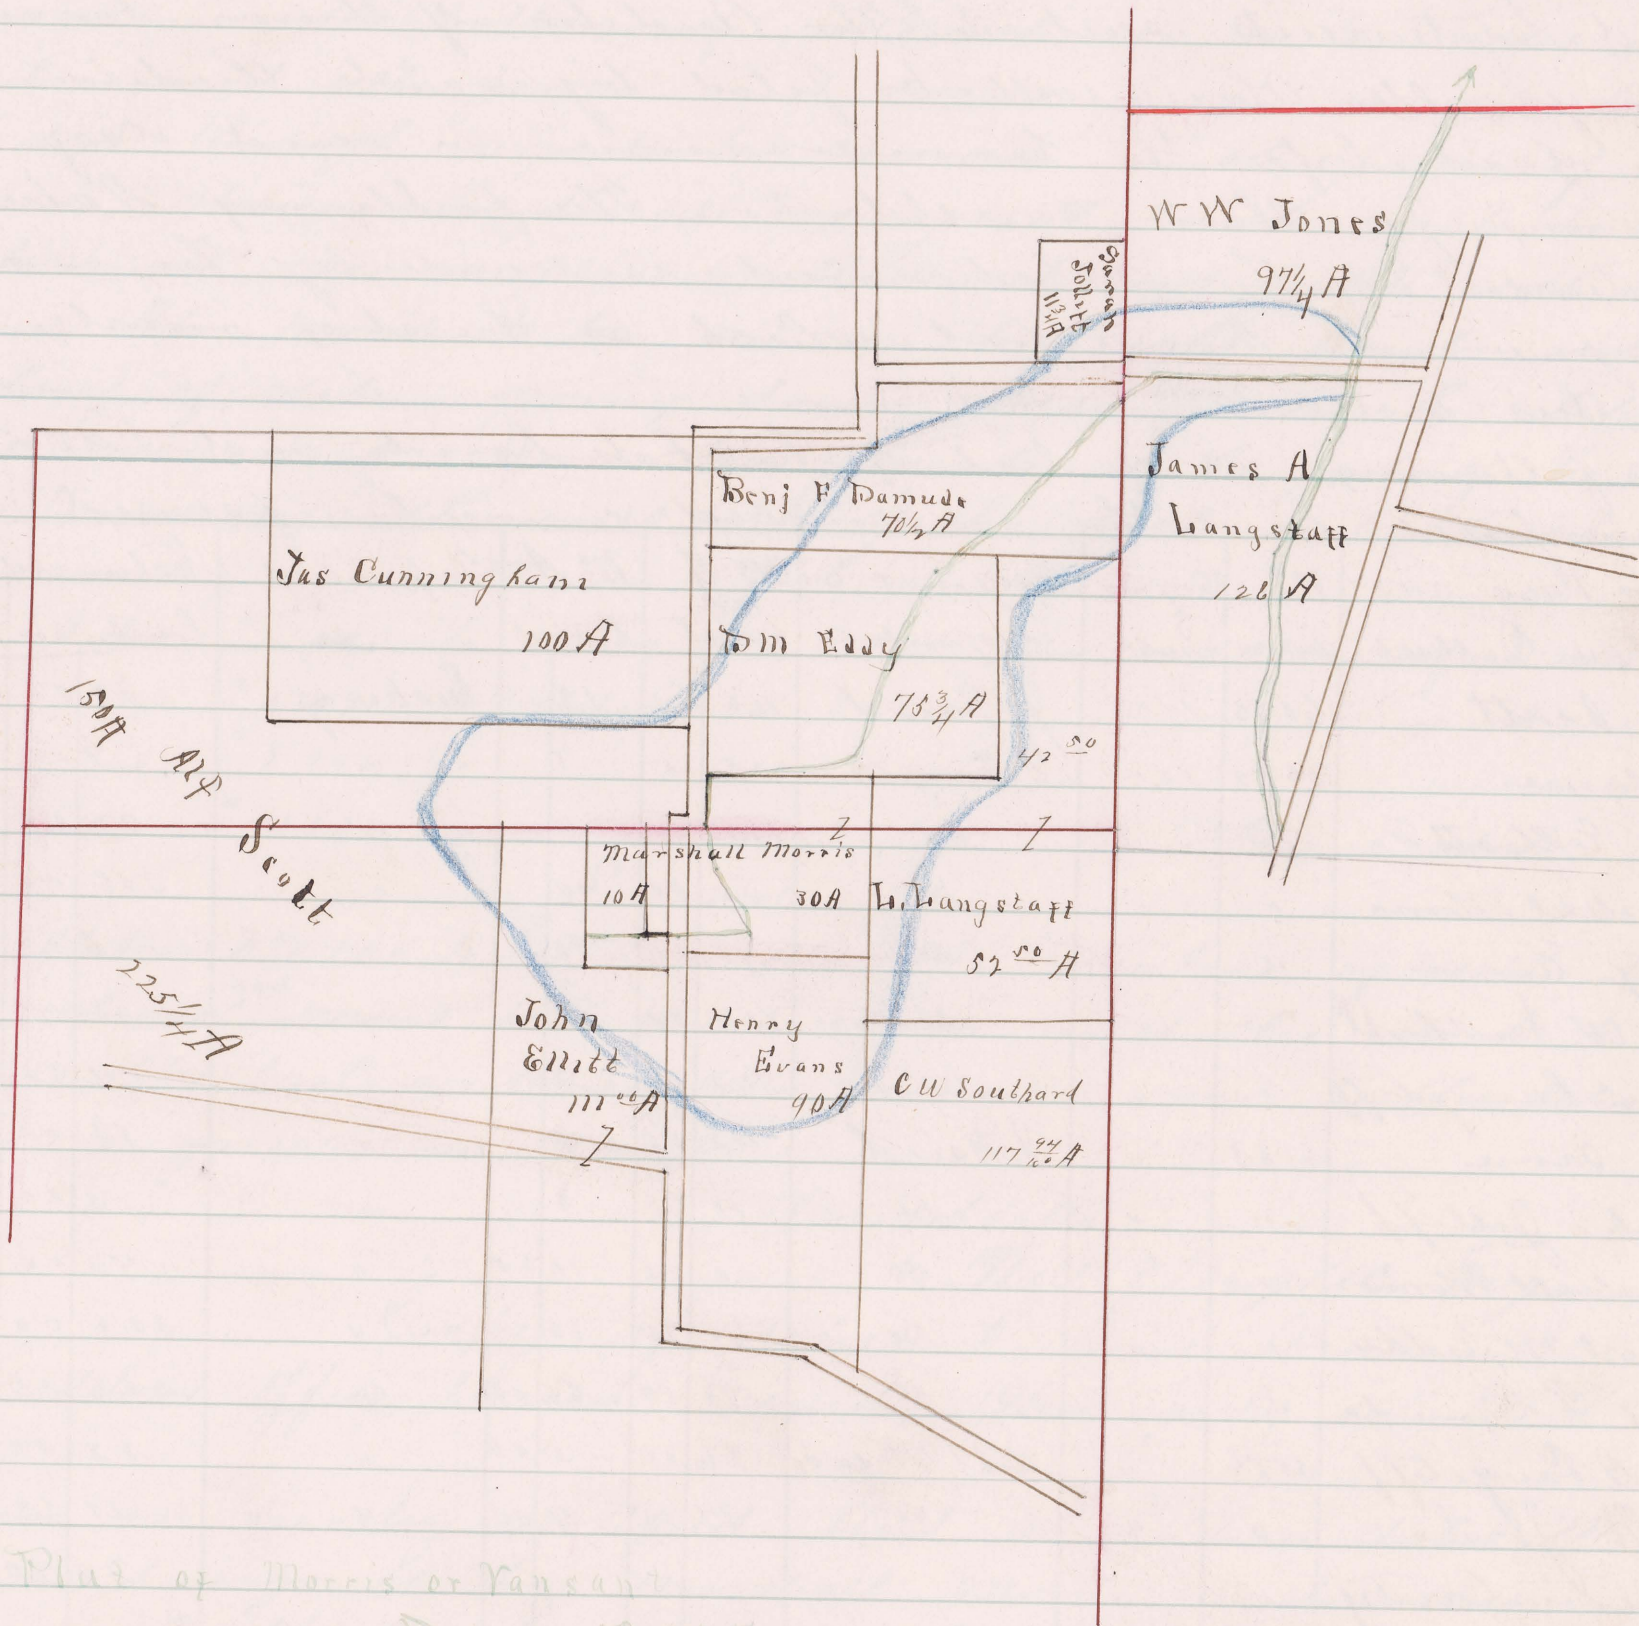 W W Jones
97 1/4 A
Jollitt
11 3/4 A
James A
Langstaff
126 A
Benj F Damude
70 1/2 A
Jas Cunningham
100 A
D M Eddy
75 3/4 A
42 50
150 A
Alf
Scott
225 1/4 A
Marshall Morris
10 A
30 A
L. Langstaff
52 50 A
John
Ellitt
111 00 A
Henry
Evans
90 A
C W Southard
117 94/100 A
Plat of Morris or Vansant